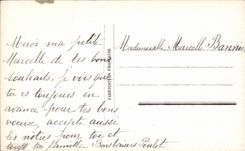 Merci ma petite
Marcelle de tes bons
souhaits. je vois que
tu es toujours en
avance pour tes bons
voeux, accepte aussi
les nôtres pour toi et
ta famille Bons baisers
Mademoiselle Marcelle